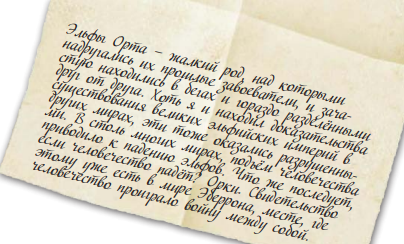 Эльфы Орта – жалкий род, над которыми
надругались их прошлые завоеватели, и зача-
стую находились в бегах и гораздо разделёнными
друг от друга. Хоть я и находил доказательства
существования великих эльфийских империй в
других мирах, эти тоже оказались разрушенны-
ми. В столь многих мирах, подъём человечества
приводило к падению Эльфов. Что же последует,
если человечество падёт? Орки. Свидетельство
этому уже есть в мире Эверрона, месте, где
человечество проиграло войну между собой.